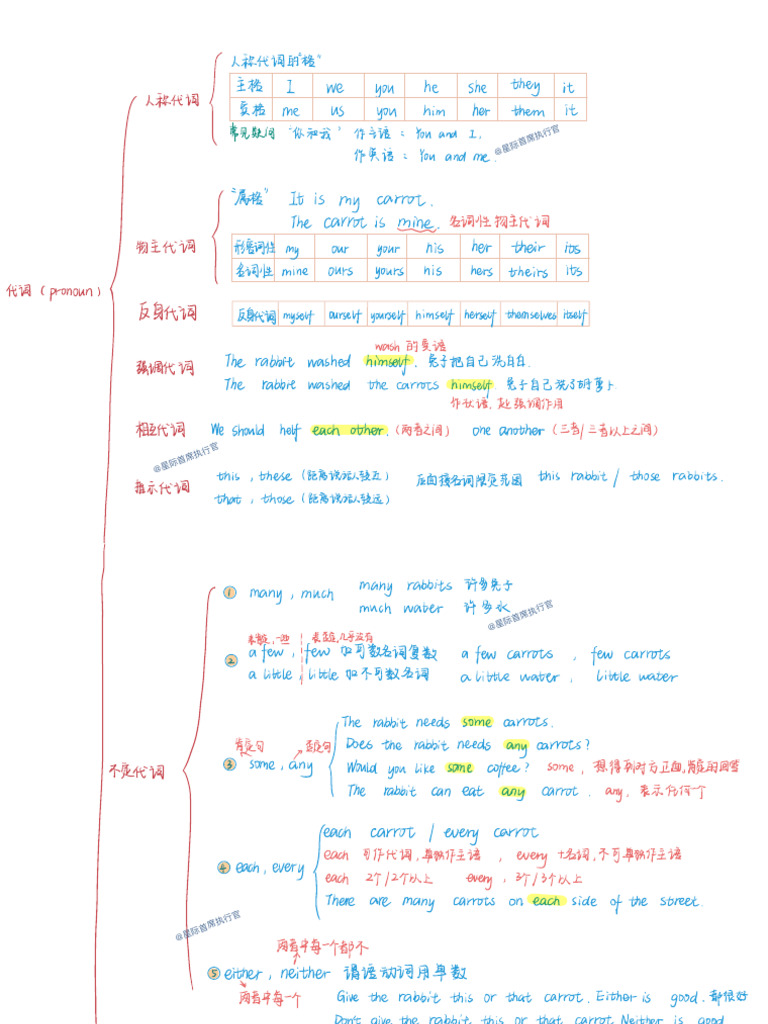 人称代词的"格"
人称代词
主格 I we you he she they it
宾格 me us you him her them it
常见疑问 "你和我" 作主语：You and I.
作宾语：You and me.
@星际首席执行官
"属格" It is my carrot.
The carrot is mine. 名词性物主代词
物主代词
形容词性 my our your his her their its
名词性 mine ours yours his hers theirs its
代词（pronoun）
反身代词
反身代词 myself ourself yourself himself herself themselves itself
wash 的宾语
强调代词
The rabbit washed himself. 兔子把自己洗白白.
The rabbit washed the carrots himself. 兔子自己洗了胡萝卜
作状语，起强调作用
相互代词 We should help each other.（两者之间） one another（三者/三者以上之间）
@星际首席执行官
指示代词
this, these（距离说话人较近） 后面接名词限定范围 this rabbit / those rabbits.
that, those（距离说话人较远）
① many, much many rabbits 许多兔子
much water 许多水
@星际首席执行官
有一些 几乎没有
② a few, few 加可数名词复数 a few carrots, few carrots
a little, little 加不可数名词 a little water, little water
不定代词
The rabbit needs some carrots.
肯定句 否定句
Does the rabbit needs any carrots?
③ some, any
Would you like some coffee? some, 想得到对方正面,肯定的回答
The rabbit can eat any carrot. any, 表示任何一个
each carrot / every carrot
each 可作代词,单独作主语, every +名词,不可单独作主语
④ each, every
each 2个/2个以上 every, 3个/3个以上
There are many carrots on each side of the street.
@星际首席执行官
两者中每一个都不
⑤ either, neither 谓语动词用单数
两者中每一个
Give the rabbit this or that carrot. Either is good. 都很好
Don't give the rabbit this or that carrot. Neither is good